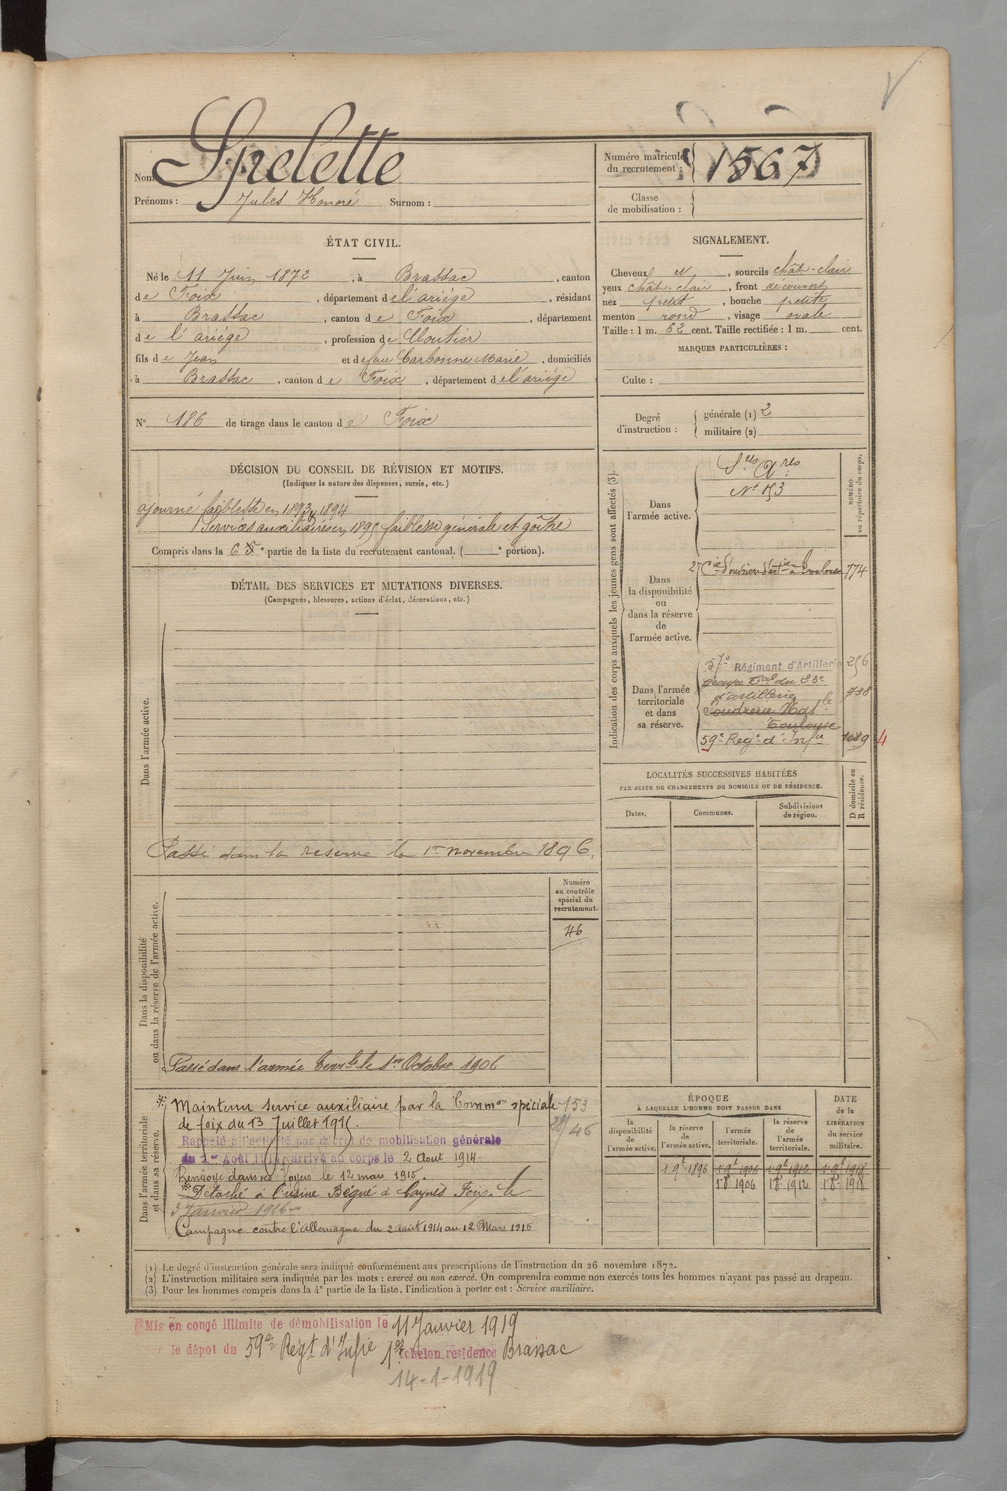 Nom : Spelette
Prénoms : Jules Honoré Surnom :
Numéro matricule du recrutement : 1567
Classe de mobilisation :
ÉTAT CIVIL.
Né le 11 Juin 1872, à Brassac, canton
de Foix, département de l'ariége, résidant
à Brassac, canton de Foix, département
de l'ariége, profession de Cloutier
fils de Jean et de feue Carbonne Marie, domiciliés
à Brassac, canton de Foix, département de l'ariége
N° 186 de tirage dans le canton de Foix
SIGNALEMENT.
Cheveux, sourcils chât-clair
yeux chât-clair, front découvert
nez petit, bouche petite
menton rond, visage ovale
Taille : 1 m. 62 cent. Taille rectifiée : 1 m. cent.
MARQUES PARTICULIÈRES :
Culte :
Degré d'instruction :
générale (1) 2
militaire (2)
DÉCISION DU CONSEIL DE RÉVISION ET MOTIFS.
(Indiquer la nature des dispenses, sursis, etc.)
ajourné faiblesse en 1893, 1894
Services auxiliaires en 1895 faiblesse générale et goître
Compris dans la 6 e partie de la liste du recrutement cantonal. ( e portion).
DÉTAIL DES SERVICES ET MUTATIONS DIVERSES.
(Campagnes, blessures, actions d'éclat, décorations, etc.)
Dans l'armée active.
Passé dans la reserve le 1er novembre 1896.
Dans la disponibilité ou dans la réserve de l'armée active.
Numéro au contrôle spécial du recrutement.
46
Passé dans l'armée terrle le 1er Octobre 1906
Dans l'armée territoriale et dans sa réserve.
* Maintenu service auxiliaire par la Common spéciale 153
de foix du 13 Juillet 191
46
Rappelé à l'activité par décret de mobilisation générale
du 1er Août 1914 arrivé au corps le 2 Aout 1914.
Renvoyé dans ses foyers le 12 mars 1915.
* Détaché à l'usine Bégué à Foix le
3 Janvier 1916
Campagne contre l'Allemagne du 2 août 1914 au 12 Mars 1915
Indication des corps auxquels les jeunes gens sont affectés (3).
NUMÉRO au répertoire du corps.
Dans l'armée active.
Ses Ares
N° 153
Dans la disponibilité ou dans la réserve de l'armée active.
2e Cie d'ouvriers d'artie à Toulouse 774
Dans l'armée territoriale et dans sa réserve.
57e Régiment d'Artillerie 256
Groupe Tal du 23e 938
d'artillerie
Poudrerie Natle
Toulouse
59e Regt d'Infie
LOCALITÉS SUCCESSIVES HABITÉES
PAR SUITE DE CHANGEMENTS DE DOMICILE OU DE RÉSIDENCE.
D domicile ou R résidence.
Dates. Communes. Subdivisions de région.
ÉPOQUE
À LAQUELLE L'HOMME DOIT PASSER DANS
DATE de la LIBÉRATION du service militaire.
la disponibilité de l'armée active. la réserve de l'armée active. l'armée territoriale. la réserve de l'armée territoriale.
1 9e 1896
1 8e 1906 1 8e 1912 1 8e 1918
(1) Le degré d'instruction générale sera indiqué conformément aux prescriptions de l'instruction du 26 novembre 1872.
(2) L'instruction militaire sera indiquée par les mots : exercé ou non exercé. On comprendra comme non exercés tous les hommes n'ayant pas passé au drapeau.
(3) Pour les hommes compris dans la 4e partie de la liste, l'indication à porter est : Service auxiliaire.
Mis en congé illimité de démobilisation le 11 Janvier 1919
par le dépot du 59e Régt d'Infie 1er échelon, résidence Brassac
14-1-1919